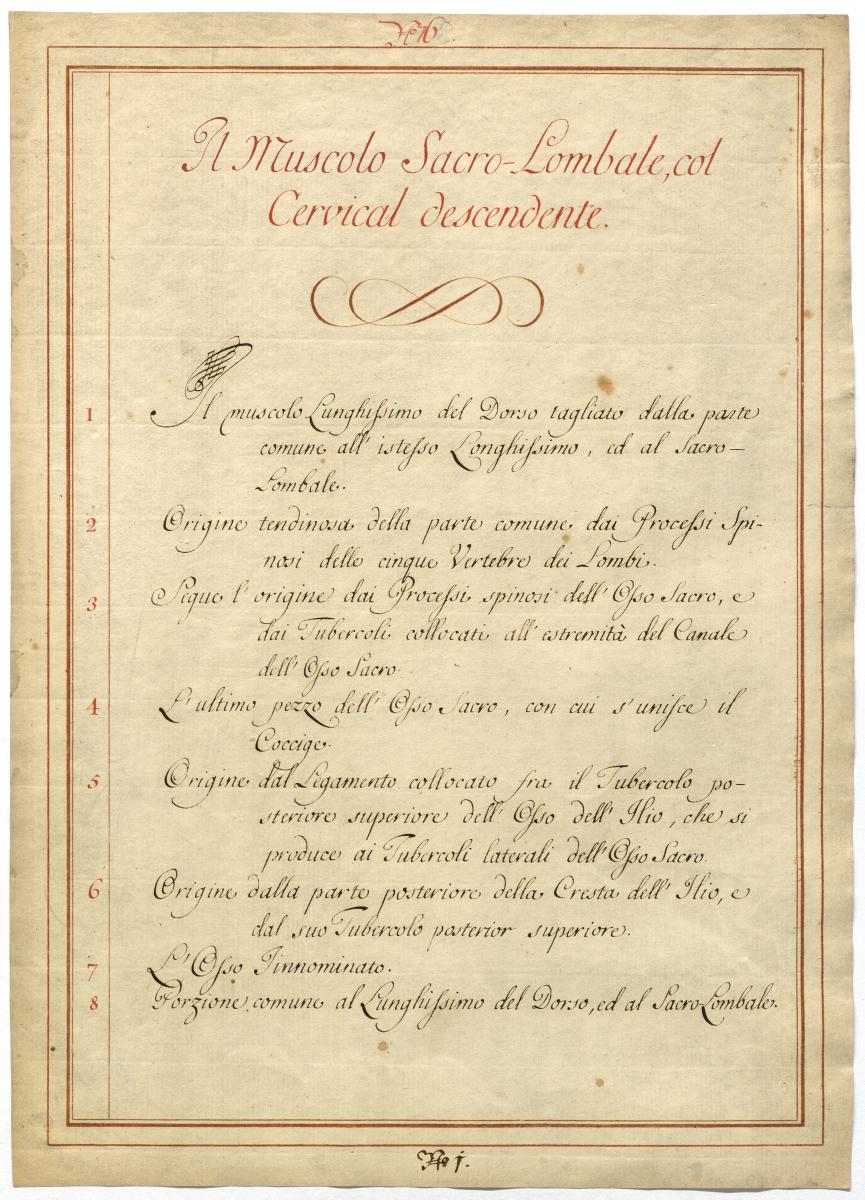 No. 16.
Il Muscolo Sacro-Lombale, col
Cervical descendente.
1 Il muscolo Lunghissimo del Dorso tagliato dalla parte
comune all' istesso Longhissimo, ed al Sacro-
Lombale.
2 Origine tendinosa della parte comune dai Processi Spi-
nosi delle cinque Vertebre dei Lombi.
3 Segue l' origine dai Processi spinosi dell' Osso Sacro, e
dai Tubercoli collocati all' estremità del Canale
dell' Osso Sacro.
4 L' ultimo pezzo dell' Osso Sacro, con cui s' unisce il
Coccige.
5 Origine dal Legamento collocato fra il Tubercolo po-
steriore superiore dell' Osso dell' Ilio, che si
produce ai Tubercoli laterali dell' Osso Sacro.
6 Origine dalla parte posteriore della Cresta dell' Ilio, e
dal suo Tubercolo posterior superiore.
7 L' Osso Innominato.
8 Porzione comune al Lunghissimo del Dorso, ed al Sacro-Lombale.
No j.